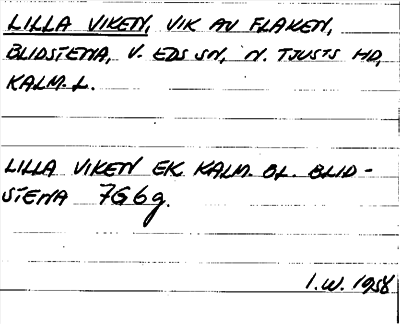 LILLA VIKEN, VIK AV FLAKEN,
BLIDSTENA, V. EDS SN, N. TJUSTS HD,
KALM. L.
LILLA VIKEN EK. KALM. BL. BLID-
STENA 7G6g.
I.W. 1958